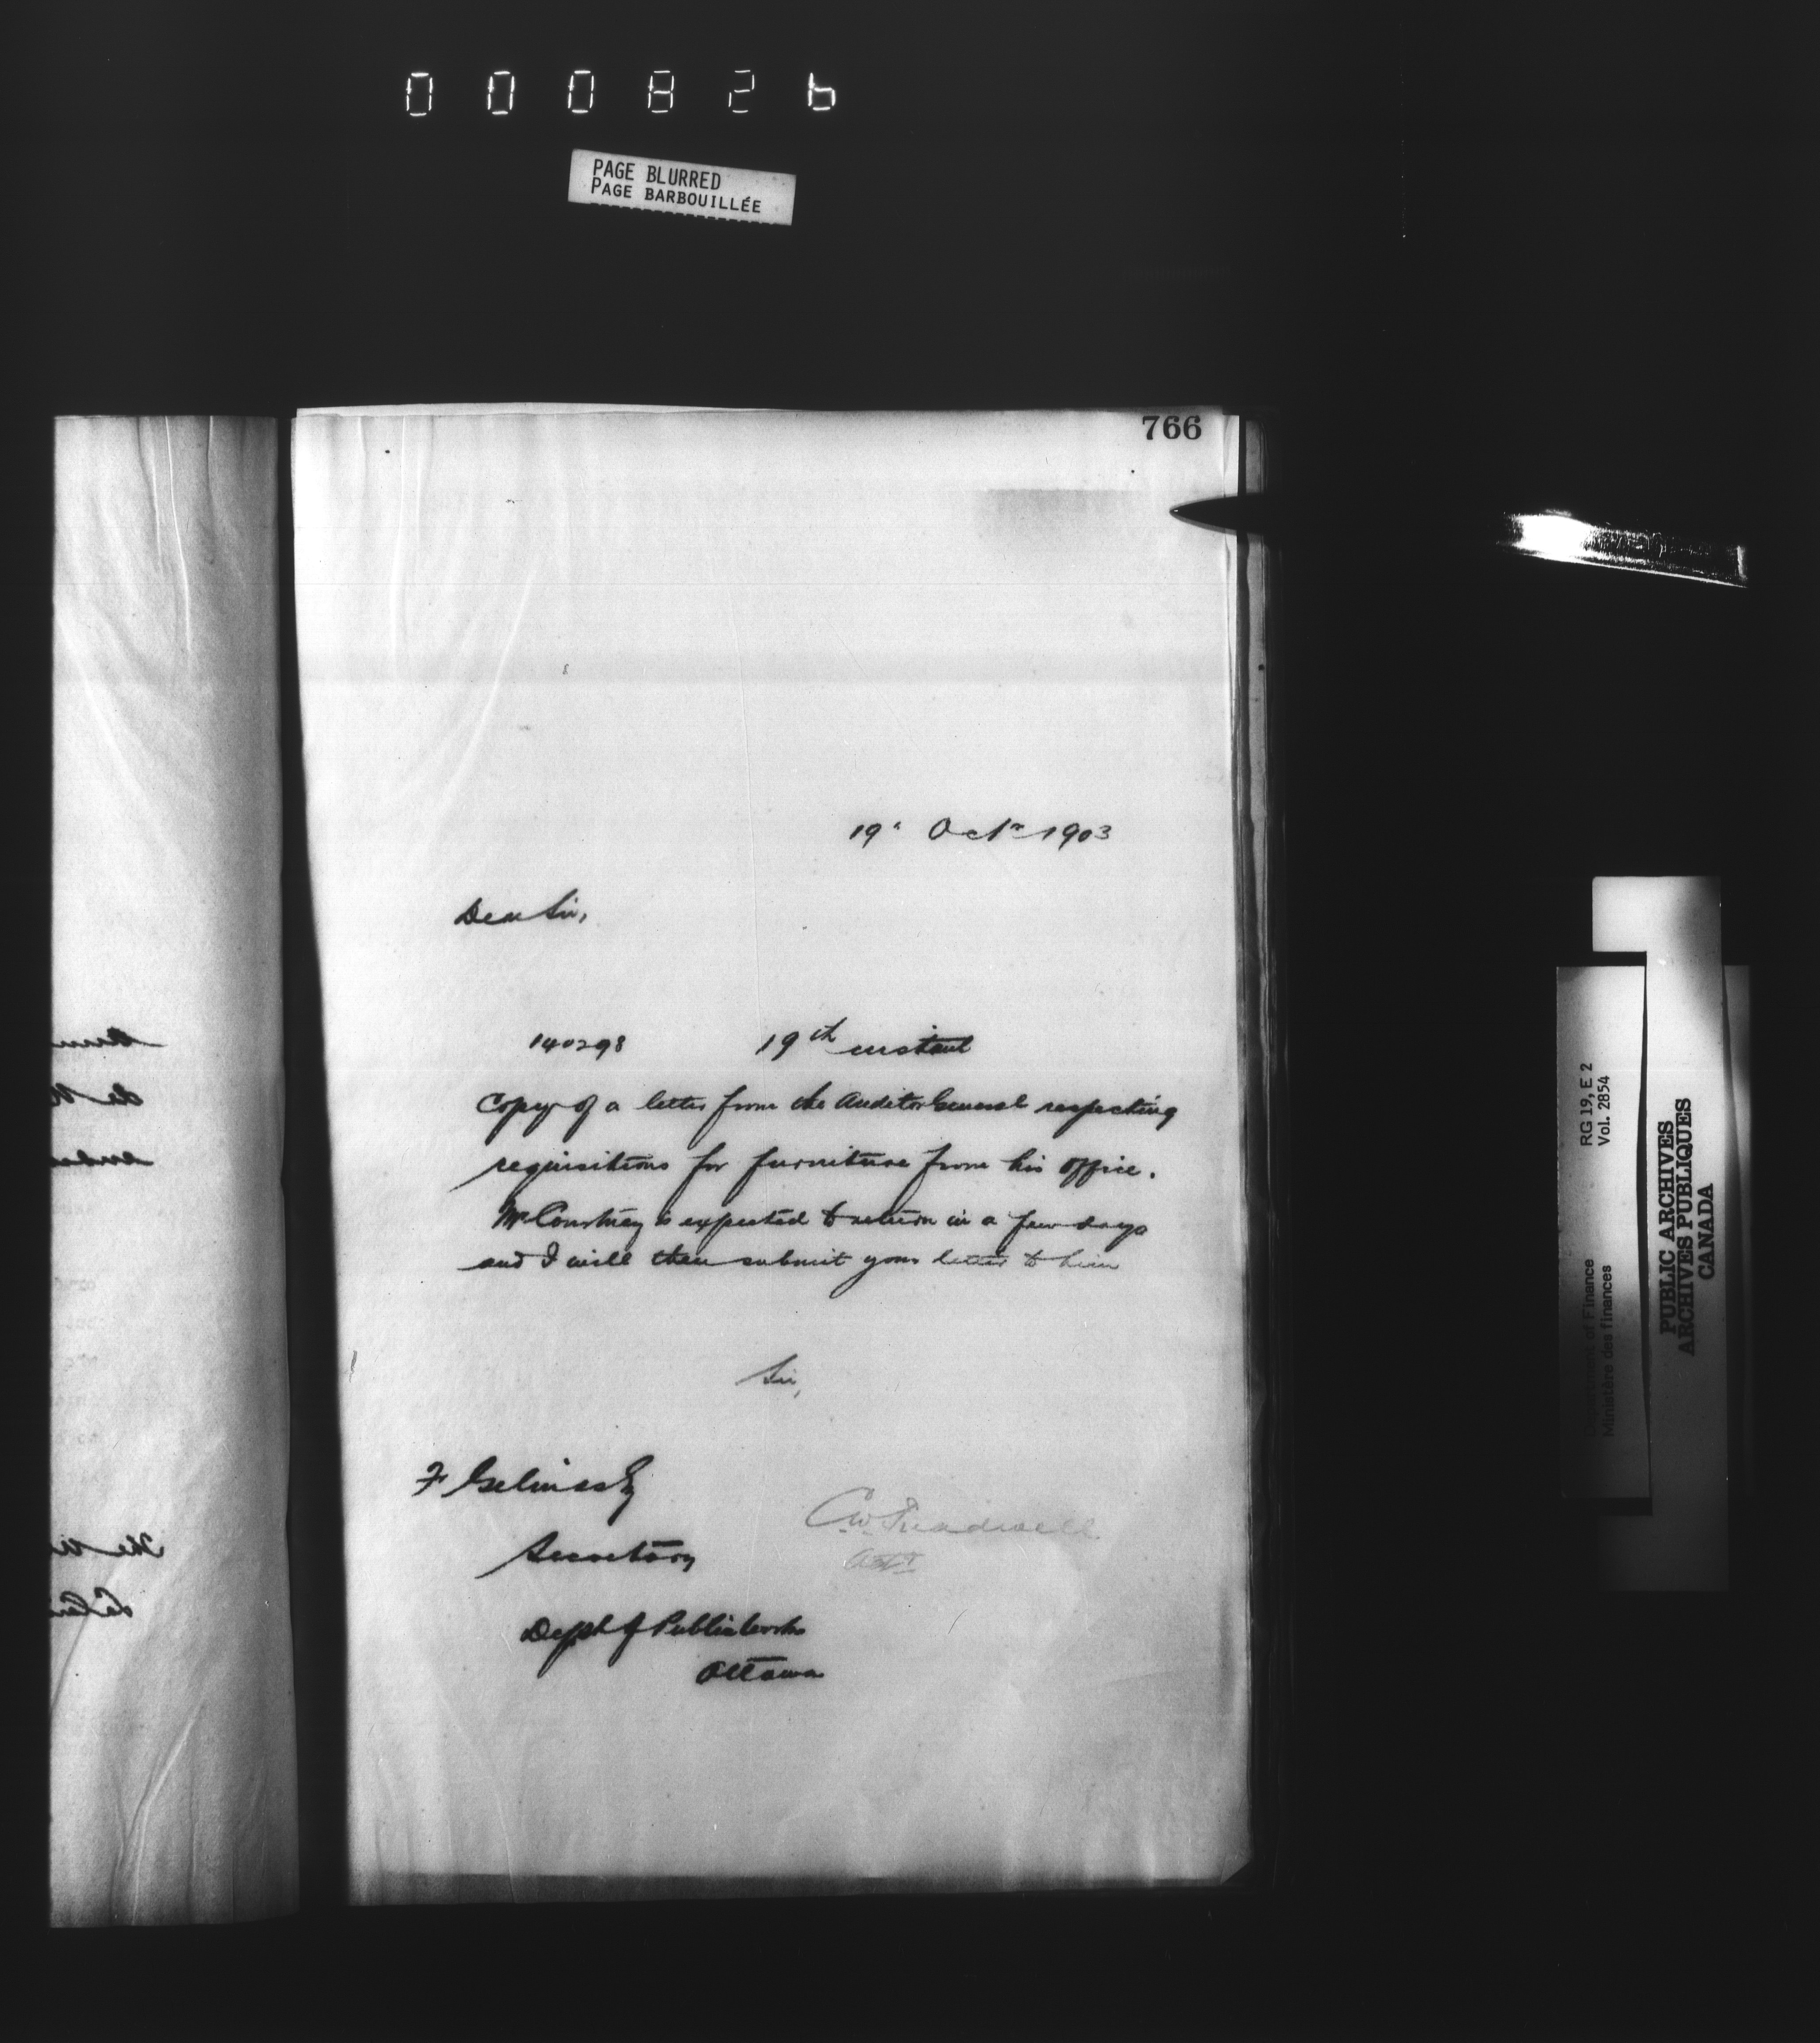 000826
PAGE BLURRED
PAGE BARBOUILLÉE
766
19th Octr 1903
Dear Sir,
140298 19th instant
Copy of a letter from the Auditor General respecting
requisitions for furniture from his office.
Mr Courtney is expected to return in a few days
and I will then submit your letter to him
Sir,
F Gelinas Esq
Secretary
C.W. Treadwell
Asst
Dept of Public Works
Ottawa
RG 19, E 2
Vol. 2854
Department of Finance
Ministère des finances
PUBLIC ARCHIVES
ARCHIVES PUBLIQUES
CANADA